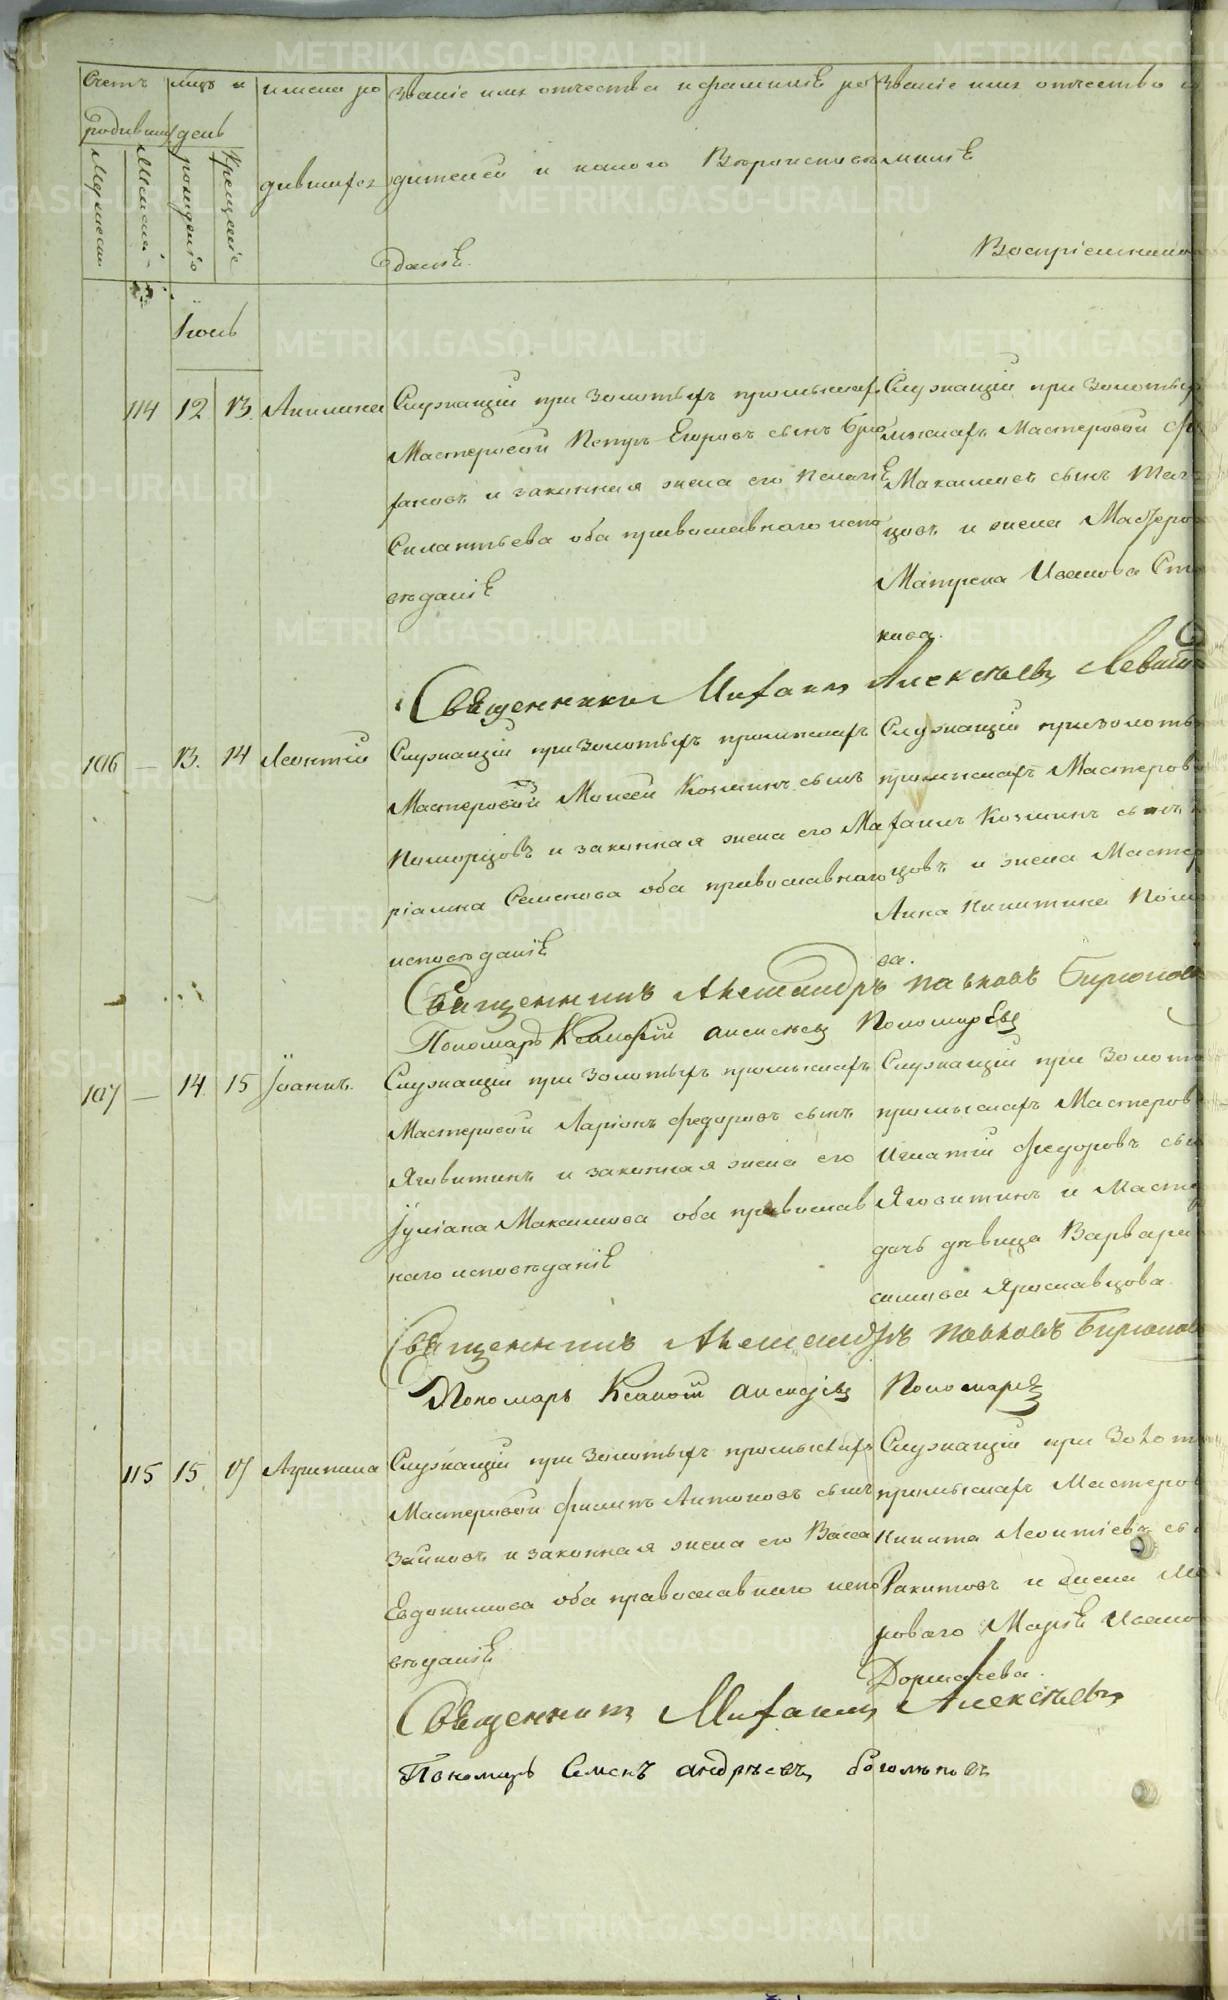 Счетъ
родивших
Мужеска
Женска
мцъ и
день
рожденiя
крещенiе
имена ро
дившихся
Званiе имя отчества и фамилiѣ ро
дителей и какого Вѣроисповѣ
данiѣ.
Званiе имя отчество и
милiѣ
Воспрiемнико
Iюнь
114 12 13. Акилина
Служащiй при Золотыхъ промыслахъ
Мастеровой Петръ Егоровъ сынъ
и законная жена его
Силантьева оба православнаго испо
вѣданiѣ
Служащiй при Золотых
мыслахъ Мастеровой
Максимовъ сынъ
цовъ и жена Мастеро
Матрена Иванова
кова.
Священникъ Михаилъ Алексѣевъ
106 — 13. 14 Леонтiй
Служащiй при Золотыхъ промыслахъ
Мастеровой Моисей Козминъ сынъ
Поморцовъ и законная жена его Ма
рiамна Семенова оба православнаго
исповѣданiѣ
Служащiй при золоты
промыслахъ Мастеров
Козминъ сынъ
цовъ и жена Мастер
Анна Никитина Помо
ва.
Священникъ Александръ Павловъ Бирюков
Пономарь Ксанѳiй Алексѣевъ Пономаревъ
107 — 14 15 Iоаннъ.
Служащiй при Золотыхъ промыслахъ
Мастеровой Ларiонъ Федоровъ сынъ
Яговитинъ и законная жена его
Iулiана Максимова оба православ
наго исповѣданiѣ
Служащiй при Золот
промыслахъ Мастеров
Игнатiй Федоровъ сы
Яговитинъ и Масте
дочь дѣвица Варвара
симова Ярославцова.
Священникъ Александръ Павловъ Бирюков
Пономарь Ксанѳiй Алексѣевъ Пономаревъ
115 15. 17 Агрипина
Служащiй при Золотыхъ промыслахъ
Мастеровой Филипъ Антоновъ сынъ
Зайковъ и законная жена его Васса
Евдокимова оба православнаго испо
вѣданiѣ
Служащiй при Золот
промыслахъ Мастеров
Никита Леонтiевъ сы
Ракитовъ и жена Ма
роваго Марiѣ Ивано
Дормачева.
Священникъ Михаилъ Алексѣевъ
Пономарь Семенъ Андрѣевъ Боголѣповъ
METRIKI.GASO-URAL.RU